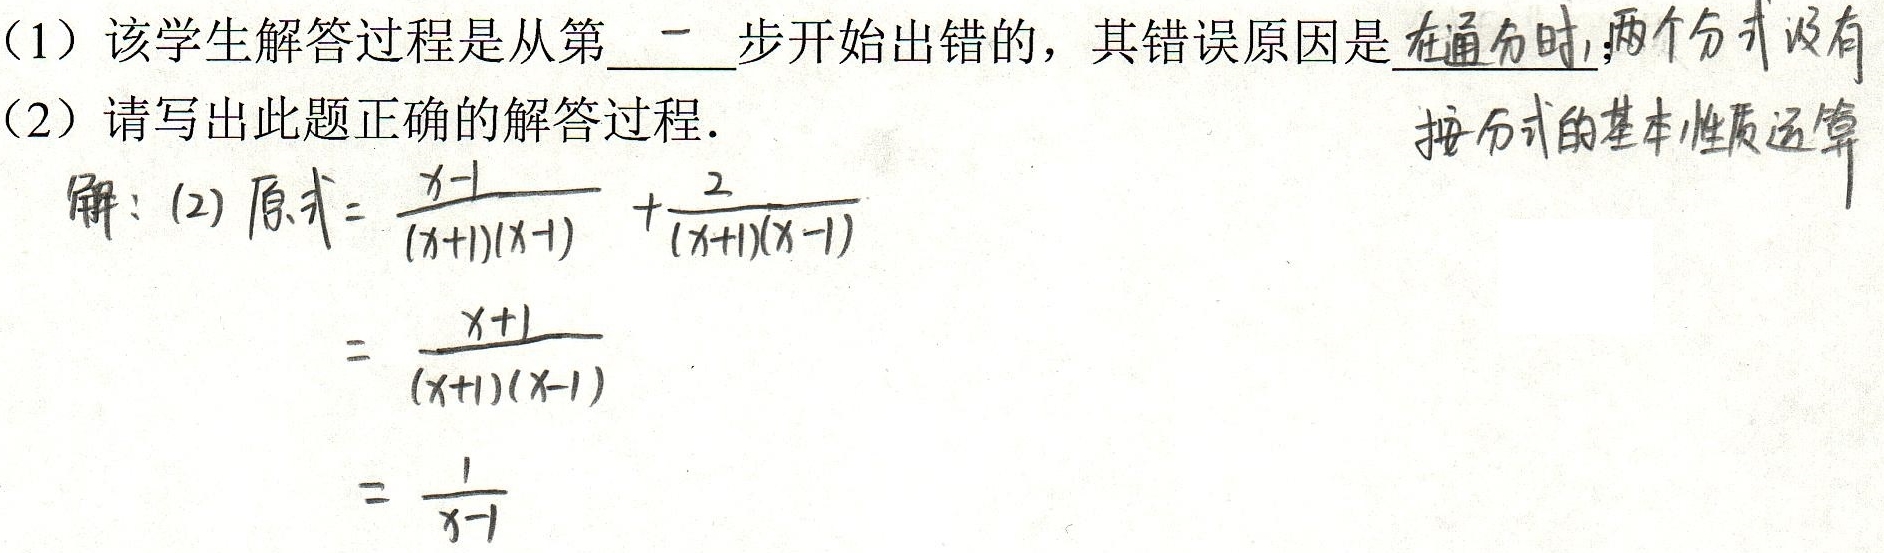 (1) 该学生解答过程是从第 一 步开始出错的，其错误原因是 在通分时，两个分式没有；
按分式的基本性质运算
(2) 请写出此题正确的解答过程．
解：(2) 原式 = \frac{x-1}{(x+1)(x-1)} + \frac{2}{(x+1)(x-1)}
= \frac{x+1}{(x+1)(x-1)}
= \frac{1}{x-1}